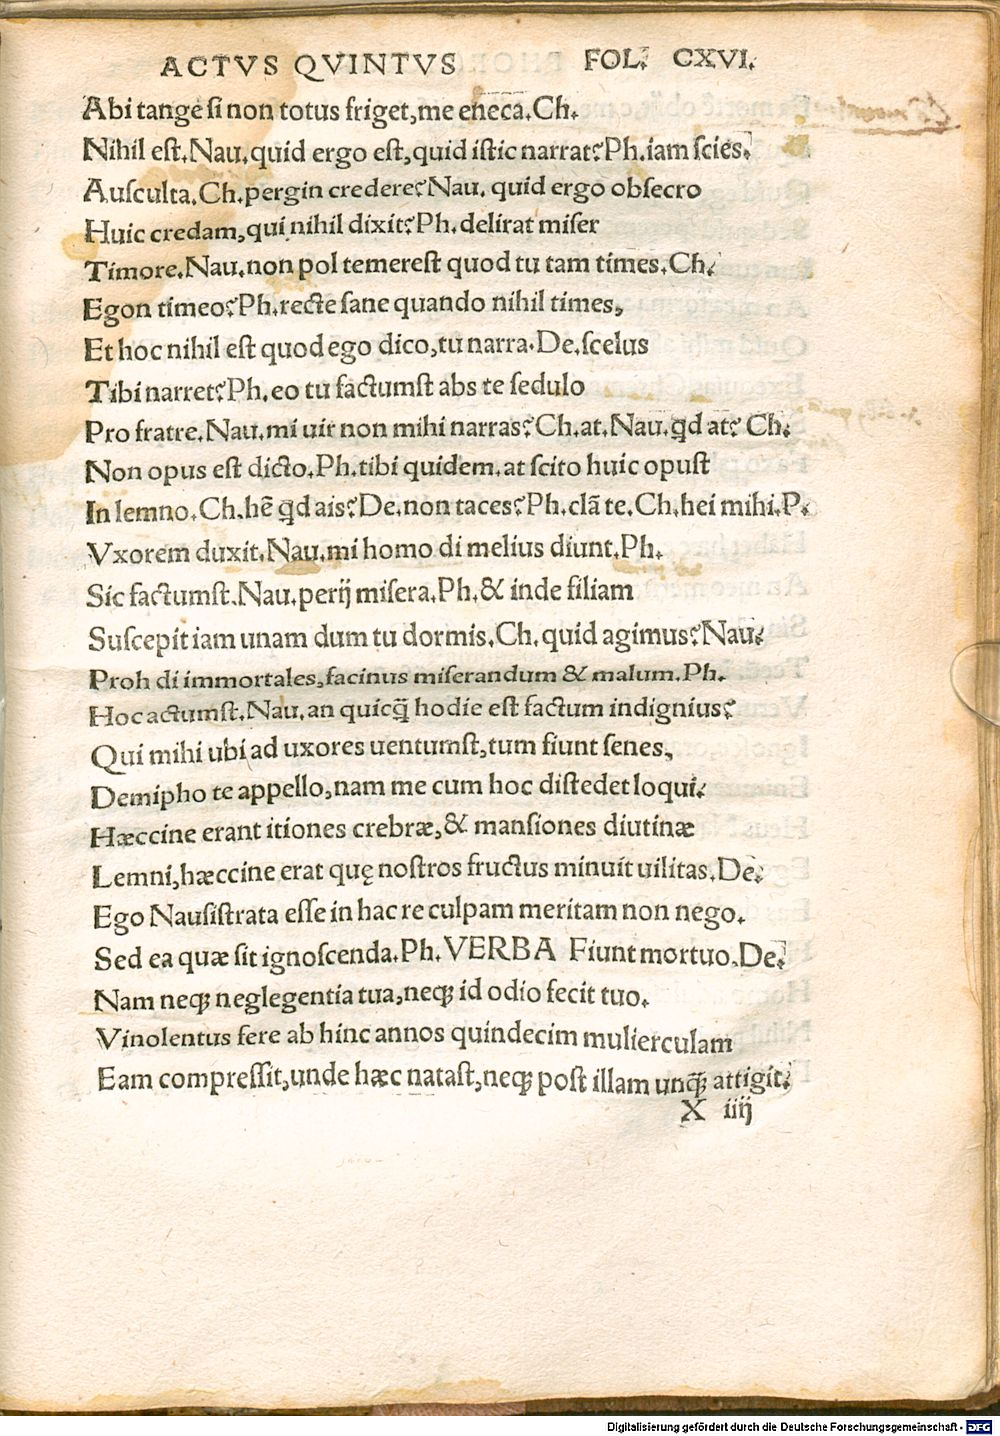 ACTVS QVINTVS FOL. CXVI.
Abi tange si non totus friget, me eneca. Ch.
Nihil est. Nau. quid ergo est, quid istic narrat? Ph. iam scies.
Ausculta. Ch. pergin credere? Nau. quid ergo obsecro
Huic credam, qui nihil dixit? Ph. delirat miser
Timore. Nau. non pol temerest quod tu tam times. Ch.
Egon timeo? Ph. recte sane quando nihil times,
Et hoc nihil est quod ego dico, tu narra. De. scelus
Tibi narret? Ph. eo tu factumst abs te sedulo
Pro fratre. Nau. mi uir non mihi narras? Ch. at. Nau. qd at? Ch.
Non opus est dicto. Ph. tibi quidem. at scito huic opust
In lemno. Ch. hē qd ais? De. non taces? Ph. clā te. Ch. hei mihi. P.
Vxorem duxit. Nau. mi homo di melius diunt. Ph.
Sic factumst. Nau. perij misera. Ph. & inde filiam
Suscepit iam unam dum tu dormis. Ch. quid agimus? Nau.
Proh di immortales, facinus miserandum & malum. Ph.
Hoc actumst. Nau. an quicq̄ hodie est factum indignius?
Qui mihi ubi ad uxores uentumst, tum fiunt senes,
Demipho te appello, nam me cum hoc distedet loqui.
Hæccine erant itiones crebræ, & mansiones diutinæ
Lemni, hæccine erat quę nostros fructus minuit uilitas. De.
Ego Nausistrata esse in hac re culpam meritam non nego.
Sed ea quæ sit ignoscenda. Ph. VERBA Fiunt mortuo. De.
Nam neqȝ neglegentia tua, neqȝ id odio fecit tuo.
Vinolentus fere ab hinc annos quindecim mulierculam
Eam compressit, unde hæc natast, neqȝ post illam unq̄ȝ attigit.
X iiij
Digitalisierung gefördert durch die Deutsche Forschungsgemeinschaft - DFG